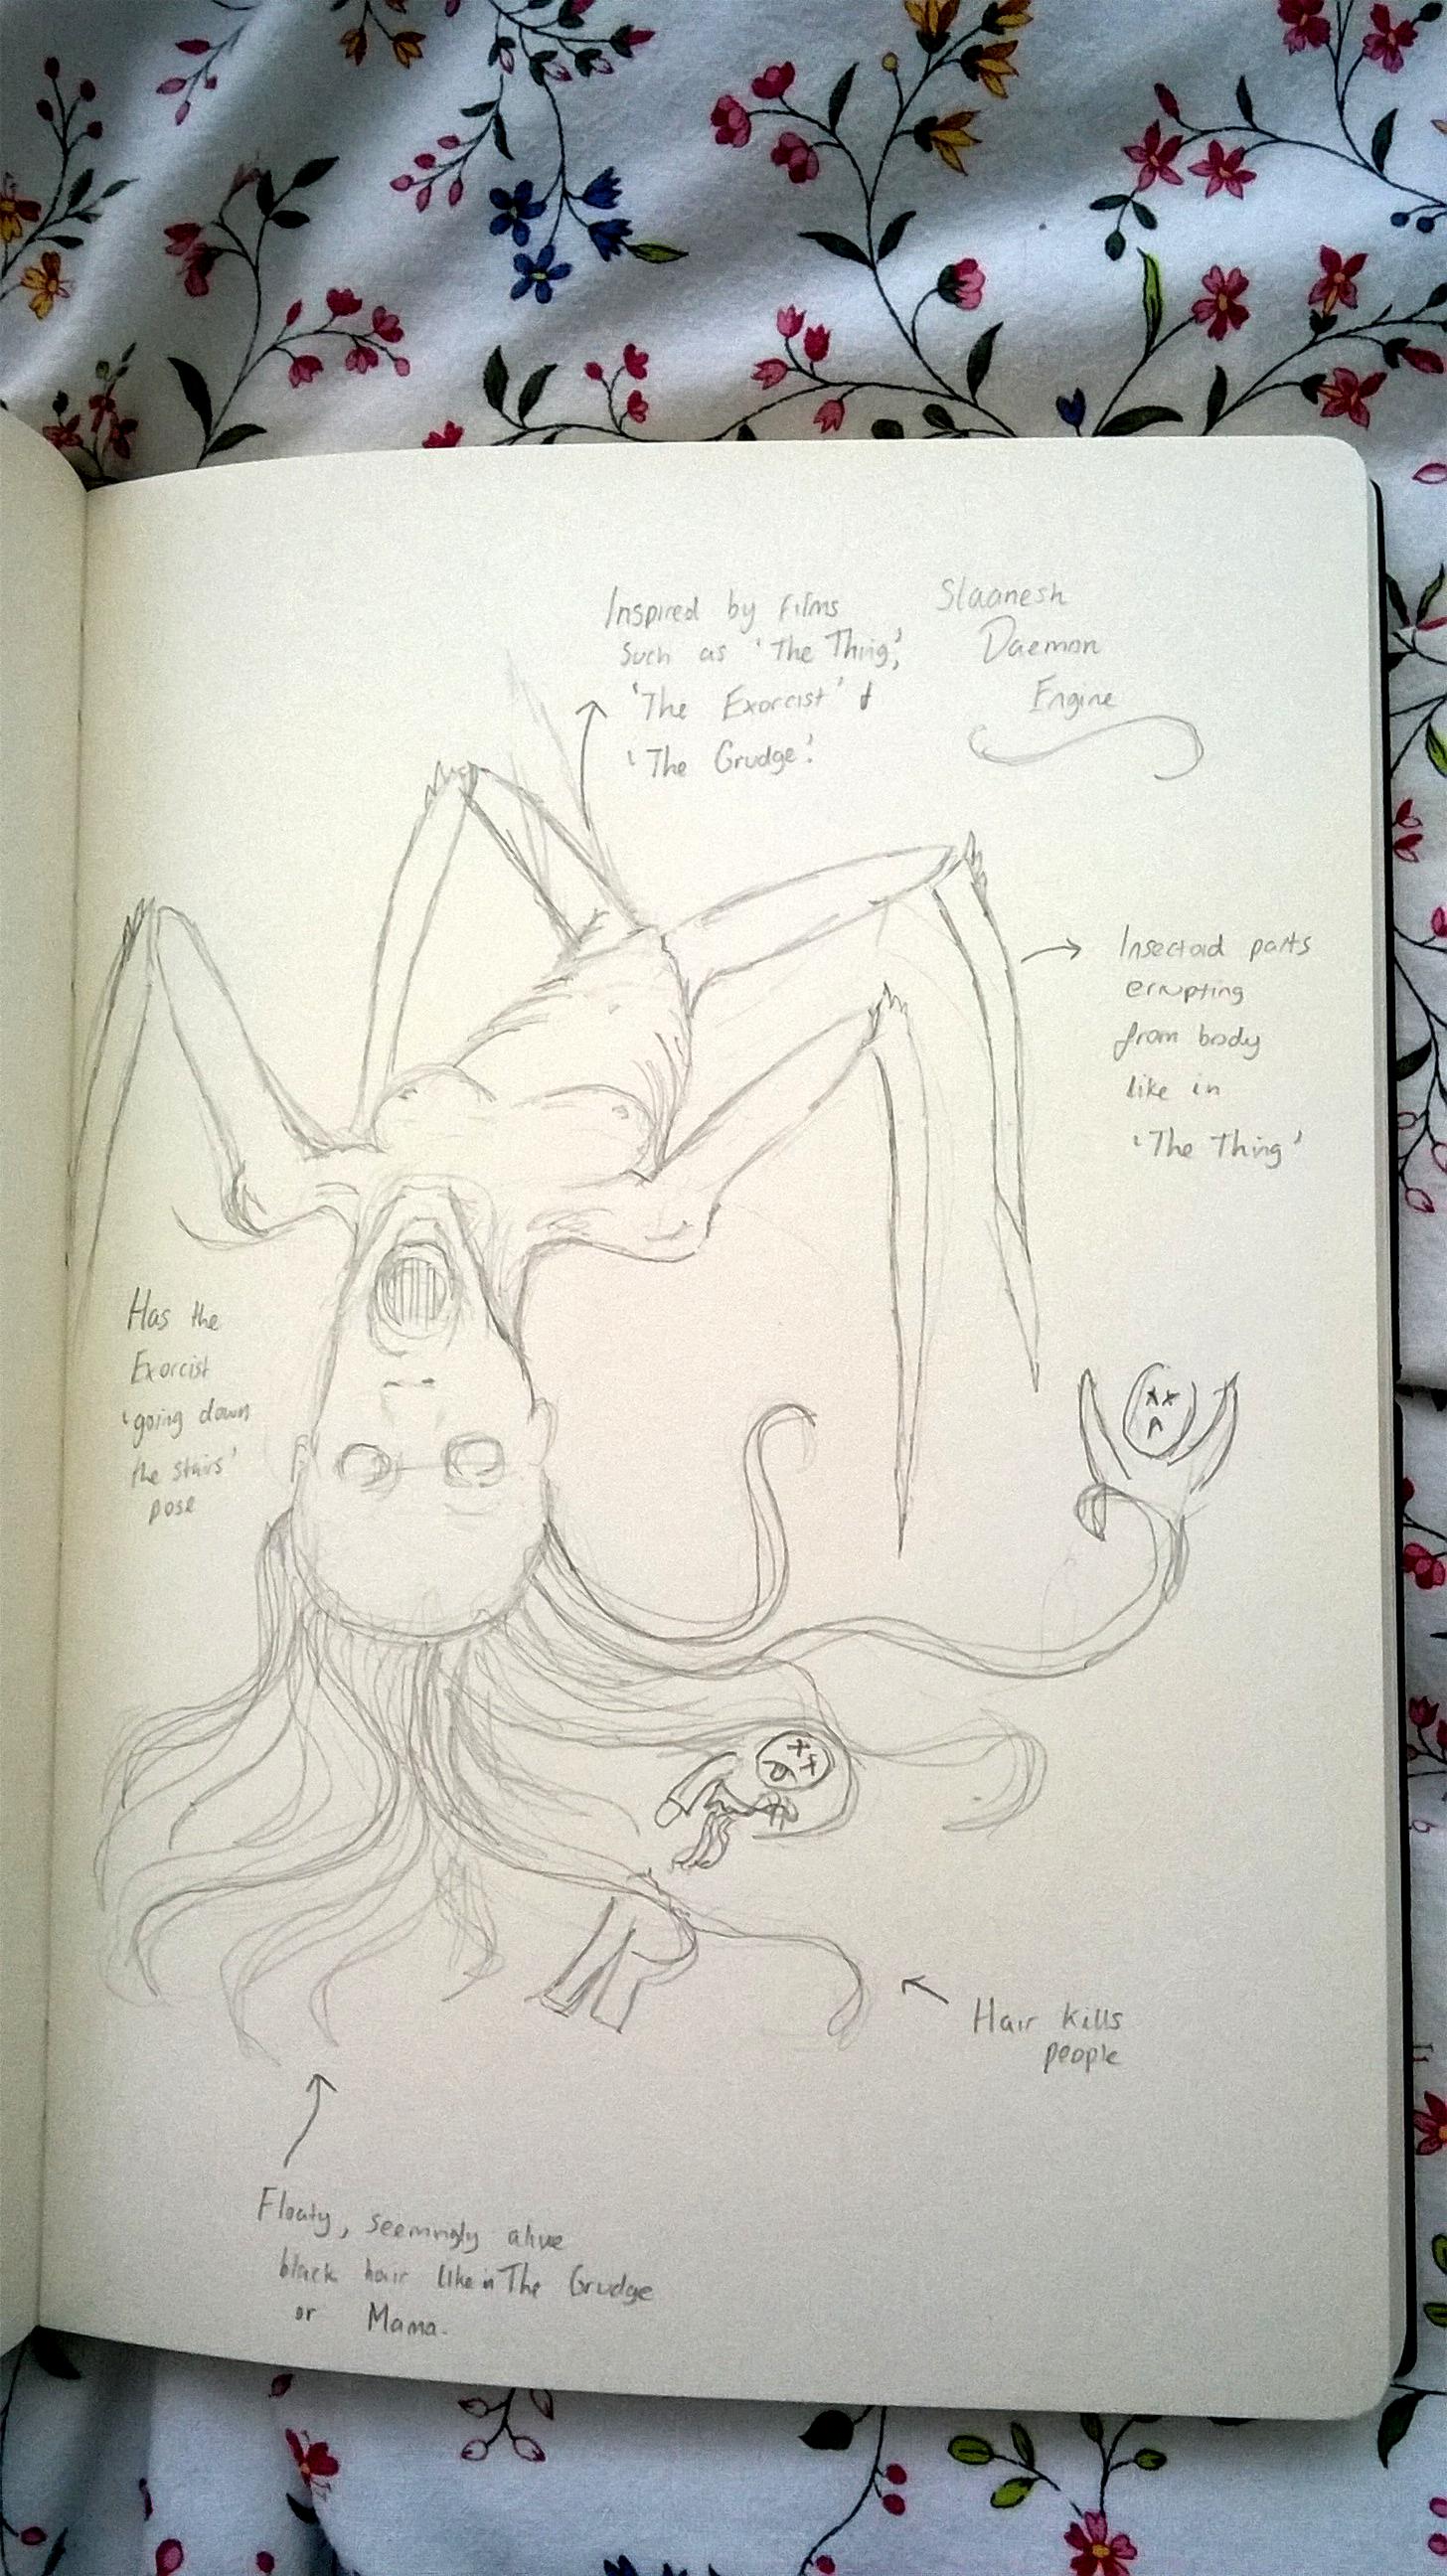 Inspired by films
such as 'The Thing',
'The Exorcist' &
'The Grudge'.
Slaanesh
Daemon
Engine
Insectoid parts
erupting
from body
like in
'The Thing'
Has the
Exorcist
'going down
the stairs'
pose
Hair kills
people
Floaty, seemingly alive
black hair like in The Grudge
or Mama.